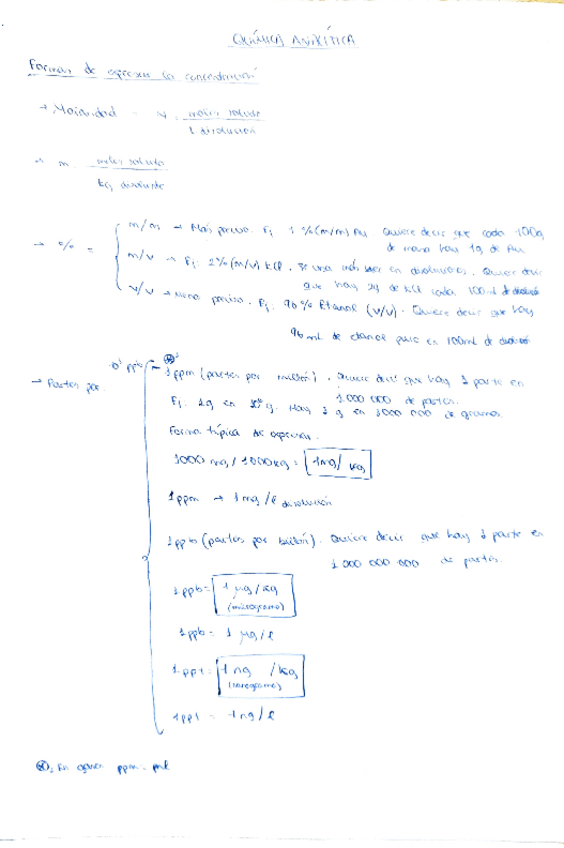 QUÍMICA ANALÍTICA
Formas de expresar la concentración
→ Molaridad = M = moles soluto
l disolución
→ m = moles soluto
kg disolvente
→ % =
m/m → Más preciso. Ej: 1 % (m/m) Au Quiere decir que cada 100g
de muestra hay 1g de Au
m/v → Ej: 2% (m/v) KCl. Se usa más en disoluciones. Quiere decir
que hay 2g de KCl cada 100ml de disolución
v/v → Menos preciso. Ej: 96 % Etanol (v/v). Quiere decir que hay
96 ml de etanol puro en 100ml de disolución
→ Partes por
1 ppm (partes por millón). Quiere decir que hay 1 parte en
1 000 000 de partes.
Ej: 1g en 10⁶ g. Hay 1 g en 1000 000 de gramos.
Forma típica de expresar.
1000 mg / 1000 kg = 1 mg / kg
1 ppm → 1 mg/l disolución
1 ppb (partes por billón). Quiere decir que hay 1 parte en
1 000 000 000 de partes.
1 ppb = 1 μg / kg
(microgramo)
1 ppb = 1 μg / l
1 ppt = 1 ng / kg
(nanogramo)
1 ppt = 1 ng / l
En ppm